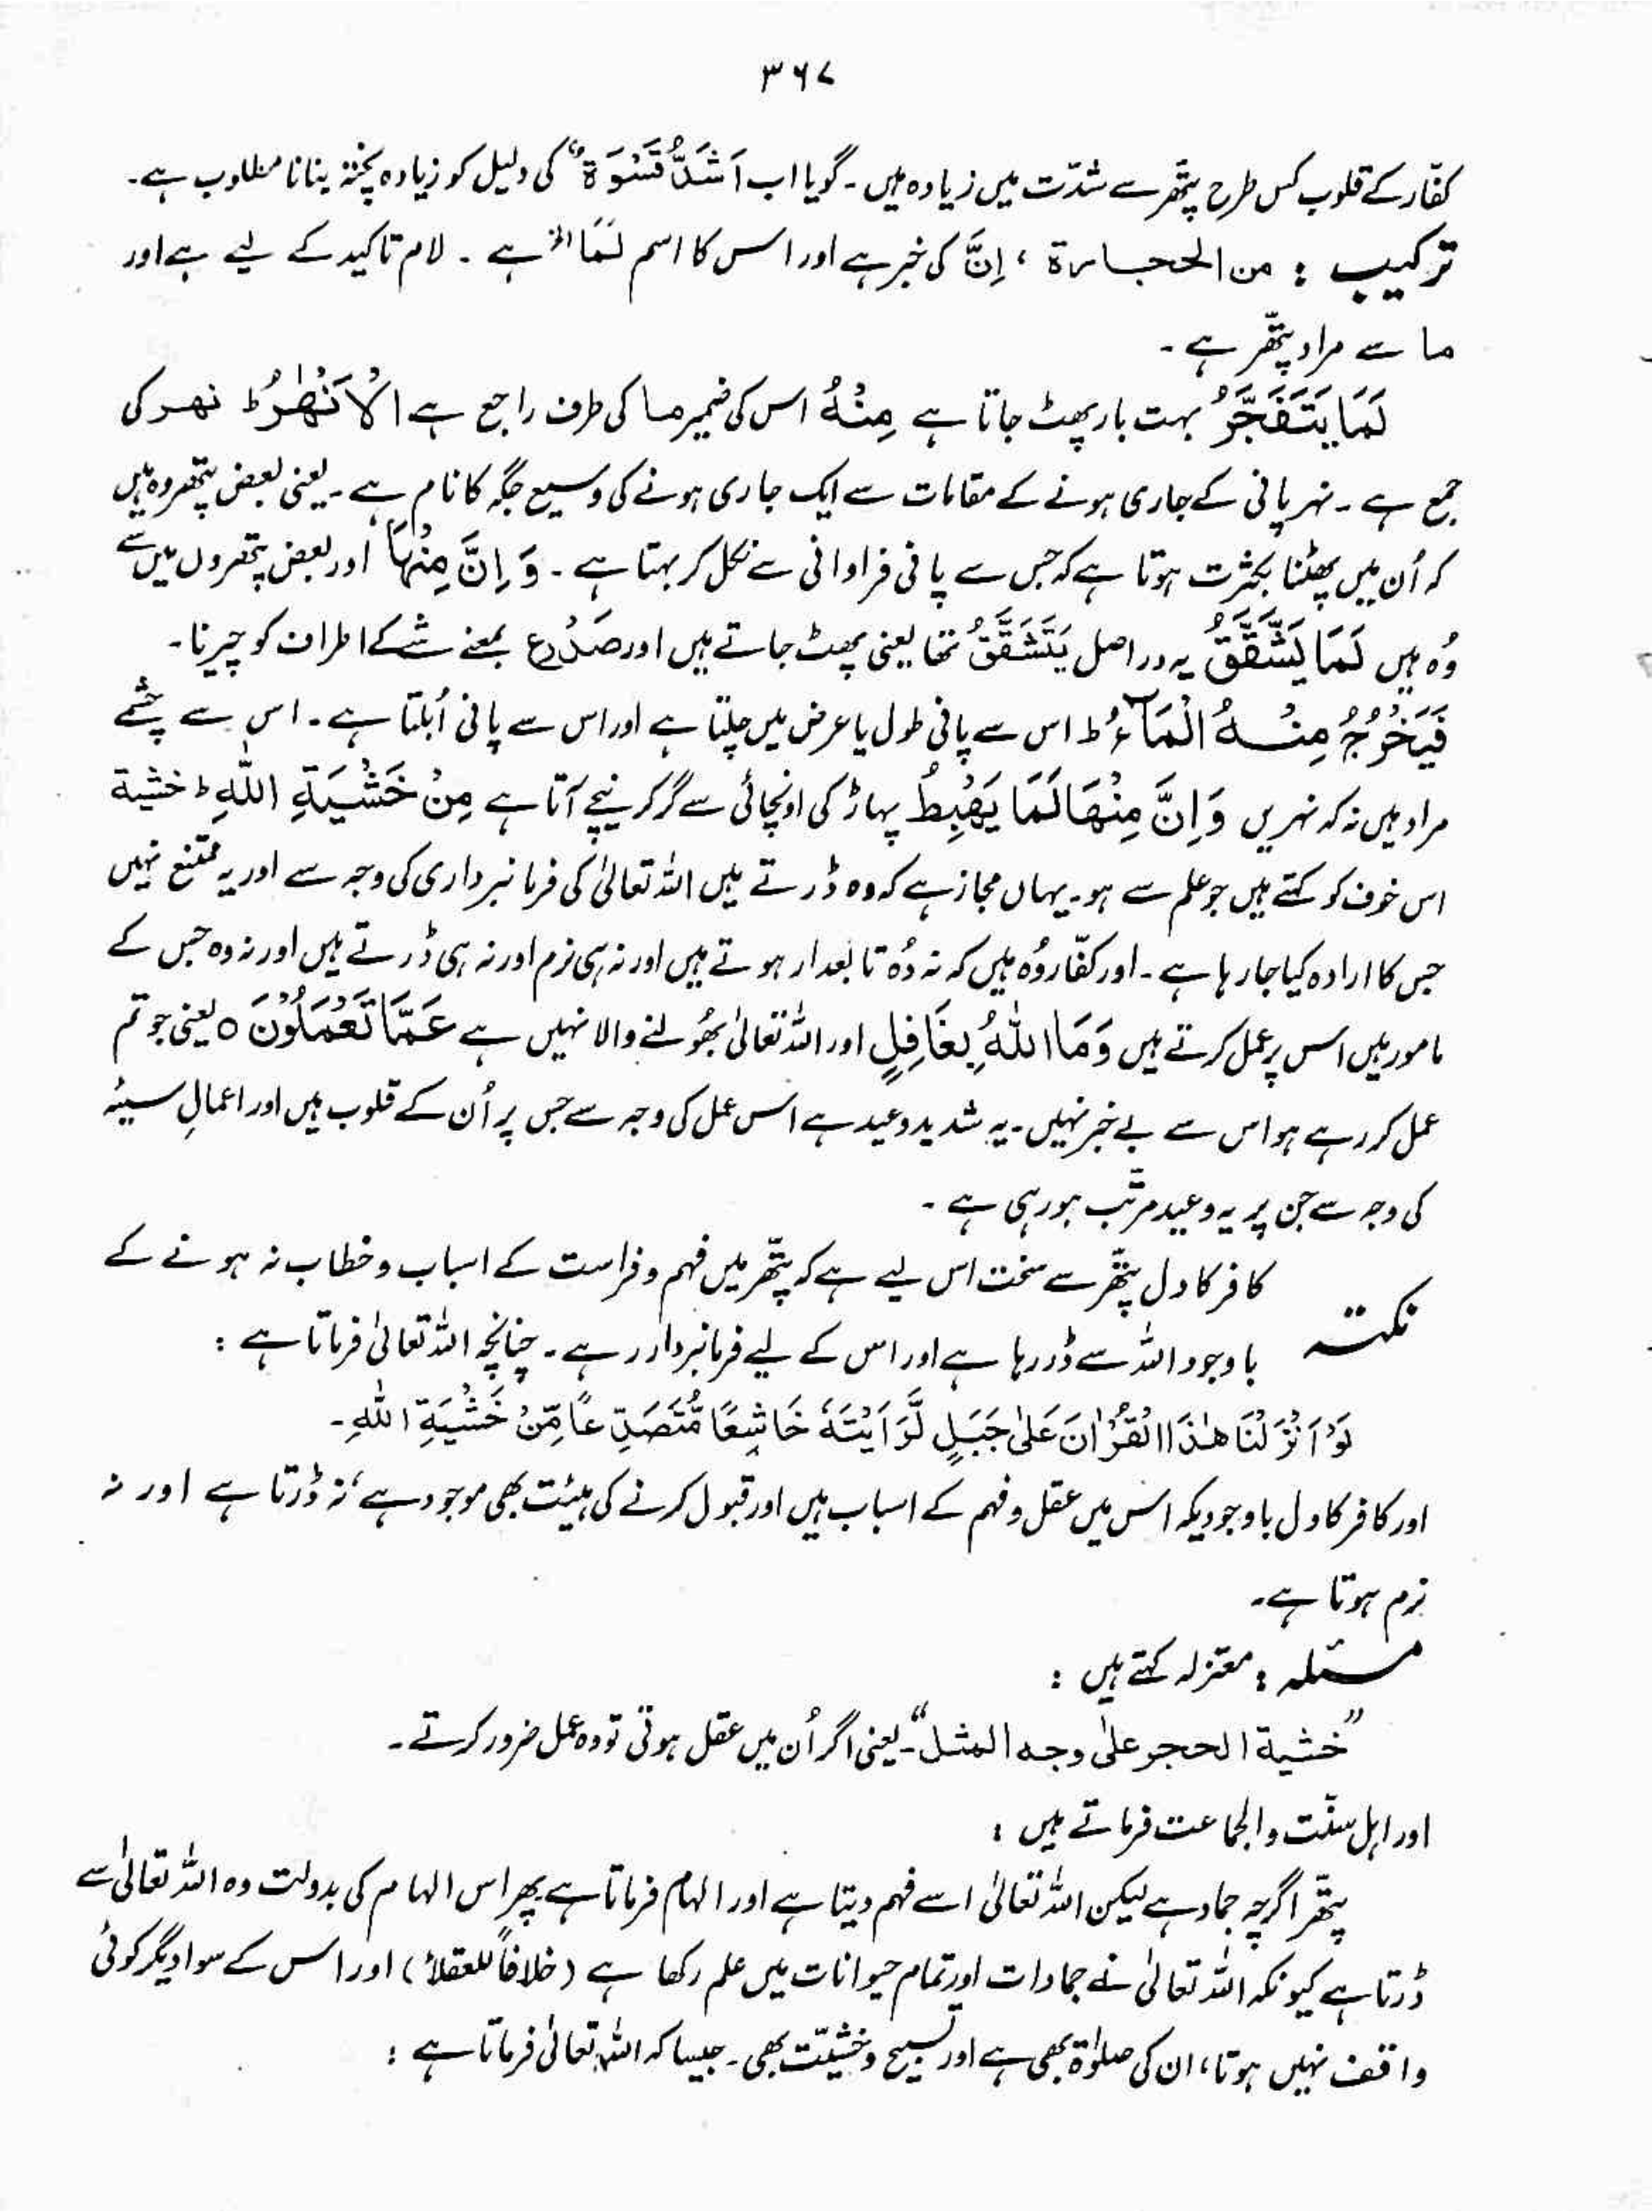 ۳۶۷
کفّار کے قلوب کس طرح پتّھر سے شدّت میں زیادہ ہیں ۔ گویا اب اَشَدُّ قَسْوَۃً کی دلیل کو زیادہ پختہ بنانا مطلوب ہے۔
ترکیب : من الحجارة ، اِنَّ کی خبر ہے اور اس کا اسم لَمَا الخ ہے ۔ لام تاکید کے لیے ہے اور
ما سے مراد پتّھر ہے ۔
لَمَا يَتَفَجَّرُ بہت بار پھٹ جاتا ہے مِنْهُ اس کی ضمیر ما کی طرف راجع ہے الْاَنْهٰرُ ط نهر کی
جمع ہے ۔ نہر پانی کے جاری ہونے کے مقامات سے ایک جاری ہونے کی وسیع جگہ کا نام ہے ۔ یعنی بعض پتھر وہ ہیں
کہ اُن میں پھٹنا بکثرت ہوتا ہے کہ جس سے پانی فراوانی سے نکل کر بہتا ہے ۔ وَ اِنَّ مِنْهَا اور بعض پتھروں میں سے
وُہ ہیں لَمَا يَشَّقَّقُ یہ در اصل يَتَشَقَّقُ تھا یعنی پھٹ جاتے ہیں اور صَدْع بمعنے شے کے اطراف کو چیرنا ۔
فَيَخْرُجُ مِنْهُ الْمَآءُ ط اس سے پانی طول یا عرض میں چلتا ہے اور اس سے پانی اُبلتا ہے ۔ اس سے چشمے
مراد ہیں نہ کہ نہریں وَ اِنَّ مِنْهَا لَمَا يَهْبِطُ پہاڑ کی اونچائی سے گر کر نیچے آتا ہے مِنْ خَشْيَةِ اللّٰهِ ط خشیة
اس خوف کو کہتے ہیں جو علم سے ہو ۔ یہاں مجاز ہے کہ وہ ڈرتے ہیں اللہ تعالیٰ کی فرمانبرداری کی وجہ سے اور یہ ممتنع نہیں
جس کا ارادہ کیا جا رہا ہے ۔ اور کفّار وُہ ہیں کہ نہ وُہ تابعدار ہوتے ہیں اور نہ ہی نرم اور نہ ہی ڈرتے ہیں اور نہ وہ جس کے
مامور ہیں اس پر عمل کرتے ہیں وَمَا اللّٰهُ بِغَافِلٍ اور اللہ تعالیٰ بھُولنے والا نہیں ہے عَمَّا تَعْمَلُوْنَ ○ یعنی جو تم
عمل کر رہے ہو اس سے بے خبر نہیں ۔ یہ شدید وعید ہے اس عمل کی وجہ سے جس پر اُن کے قلوب ہیں اور اعمالِ سیئہ
کی وجہ سے جن پر یہ وعید مرتّب ہو رہی ہے ۔
نکتہ کافر کا دل پتّھر سے سخت اس لیے ہے کہ پتّھر میں فہم و فراست کے اسباب و خطاب نہ ہونے کے
باوجود اللہ سے ڈر رہا ہے اور اس کے لیے فرمانبردار رہے ۔ چنانچہ اللہ تعالیٰ فرماتا ہے :
لَوْ اَنْزَلْنَا هٰذَا الْقُرْاٰنَ عَلٰی جَبَلٍ لَّرَاَيْتَهٗ خَاشِعًا مُّتَصَدِّعًا مِّنْ خَشْيَةِ اللّٰهِ ۔
اور کافر کا دل باوجودیکہ اس میں عقل و فہم کے اسباب ہیں اور قبول کرنے کی ہیئت بھی موجود ہے ، نہ ڈرتا ہے اور نہ
نرم ہوتا ہے۔
مسئلہ : معتزلہ کہتے ہیں :
”خشیة الحجر علیٰ وجه المثل“ ۔ یعنی اگر اُن میں عقل ہوتی تو وہ عمل ضرور کرتے ۔
اور اہل سنّت والجماعت فرماتے ہیں :
پتّھر اگرچہ جماد ہے لیکن اللہ تعالیٰ اسے فہم دیتا ہے اور الہام فرماتا ہے پھر اس الہام کی بدولت وہ اللہ تعالیٰ سے
ڈرتا ہے کیونکہ اللہ تعالیٰ نے جمادات اور تمام حیوانات میں علم رکھا ہے (خلافاً للعقلاء) اور اس کے سوا دیگر کوئی
واقف نہیں ہوتا ، ان کی صلوٰۃ بھی ہے اور تسبیح و خشیّت بھی ۔ جیسا کہ اللہ تعالیٰ فرماتا ہے :